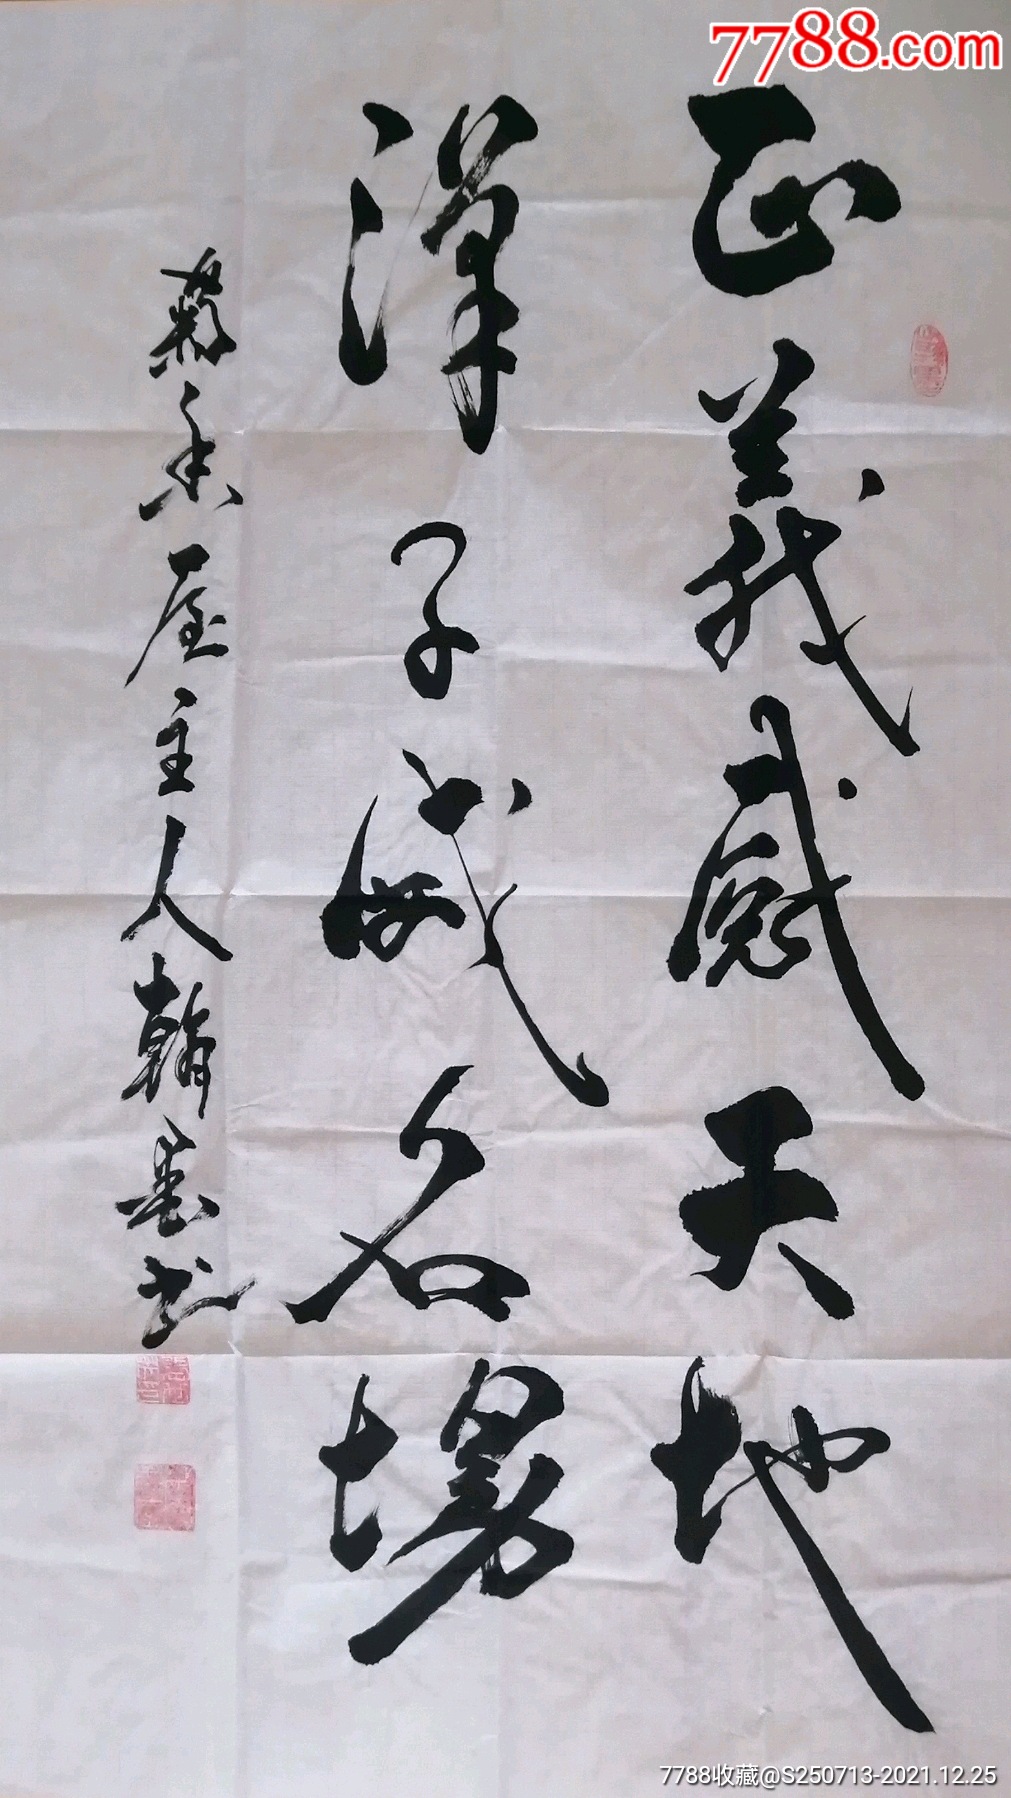 7788.com
正義感天地
漢子威名揚
香屋主人翰墨书
7788收藏@S250713-2021.12.25